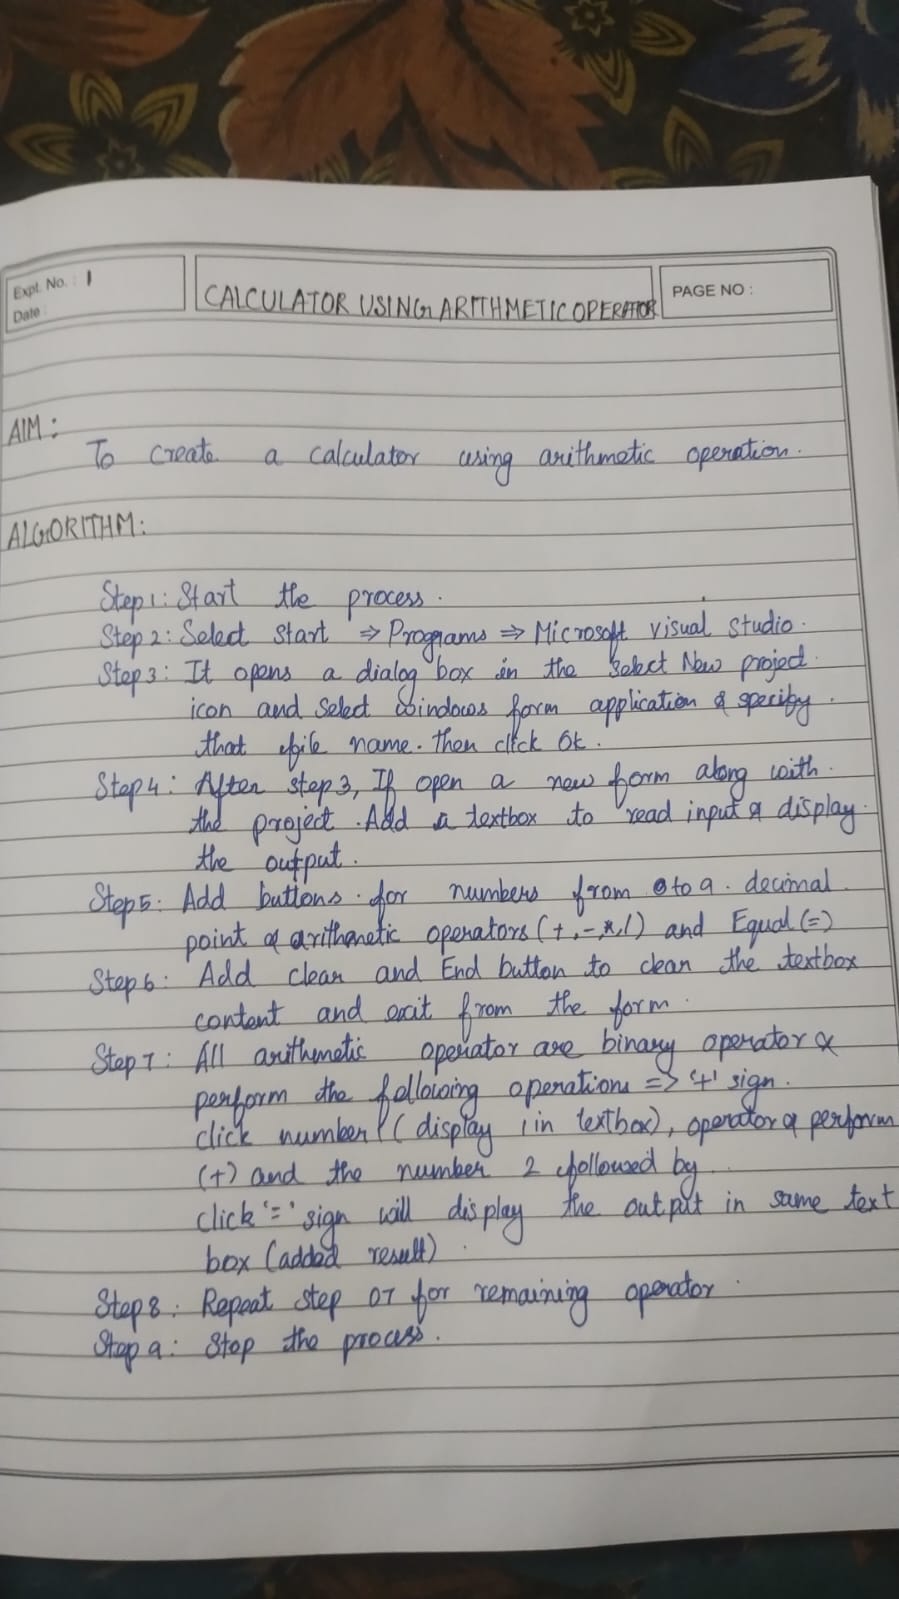 Expt. No. : 1
Date :
CALCULATOR USING ARITHMETIC OPERATOR
PAGE NO :
AIM :
To create a calculator using arithmetic operation.
ALGORITHM:
Step 1: Start the process.
Step 2: Select start ⇒ Programs ⇒ Microsoft visual studio.
Step 3: It opens a dialog box in the select New project
icon and select windows form application & specify
that file name. then click ok.
Step 4: After step 3, If open a new form along with
the project. Add a textbox to read input & display
the output.
Step 5: Add buttons for numbers from 0 to 9. decimal
point & arithmetic operators (+, -, *, /) and Equal (=)
Step 6: Add clear and End button to clean the textbox
content and exit from the form.
Step 7: All arithmetic operator are binary operator &
perform the following operations => '+' sign.
click number 1 ( display 1 in textbox), operator & perform
(+) and the number 2 followed by
click '=' sign will display the output in same text
box (added result).
Step 8: Repeat step 07 for remaining operator.
Step 9: Stop the process.